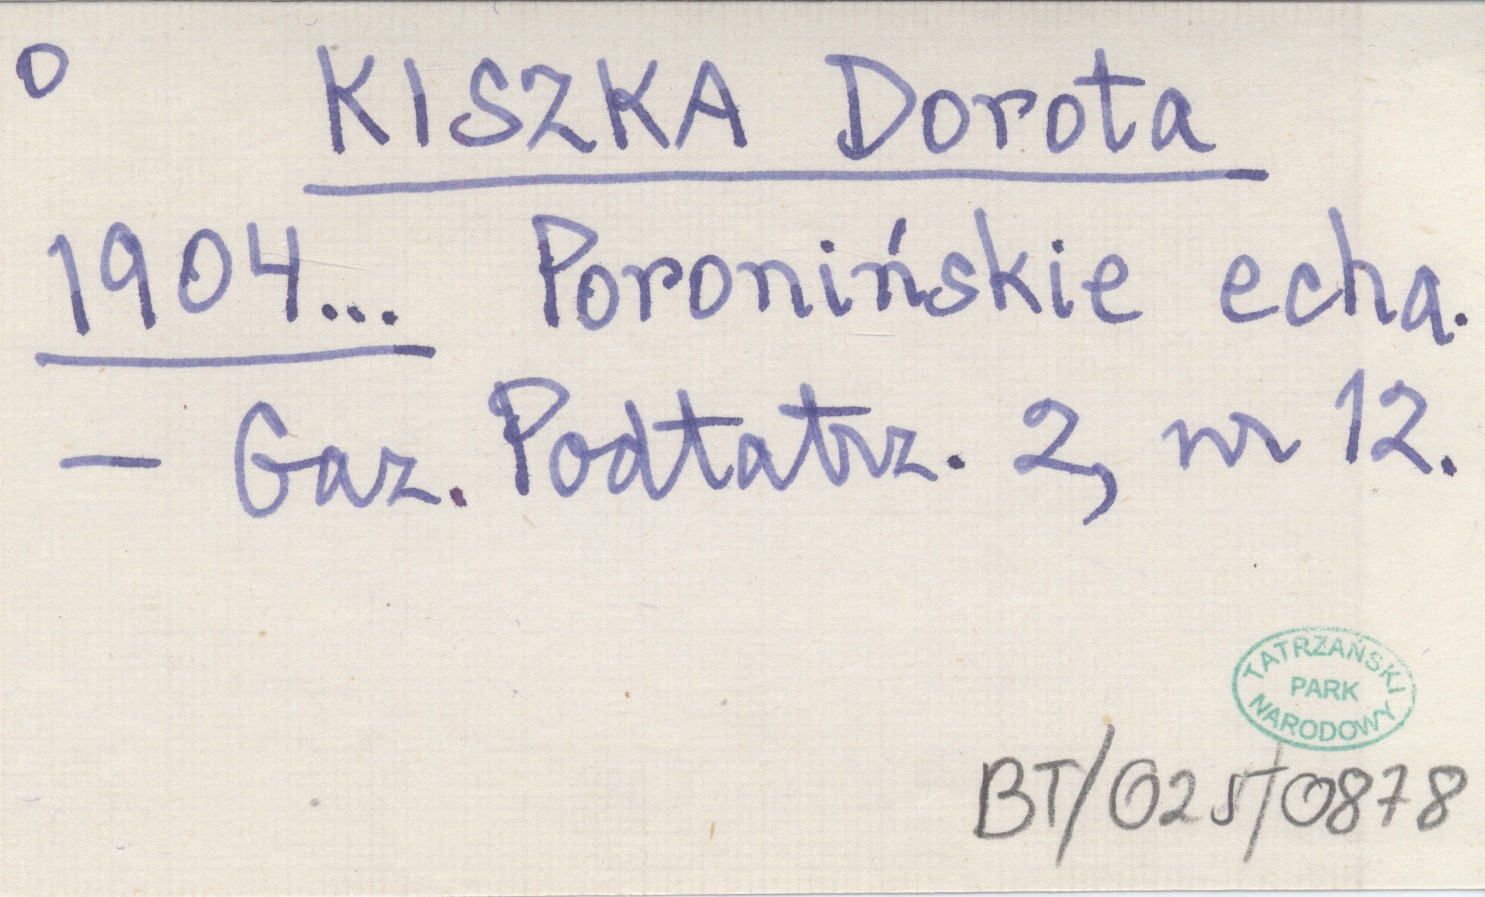 O KISZKA Dorota
1904... Poronińskie echa.
— Gaz. Podtatrz. 2, nr 12.
TATRZAŃSKI
PARK
NARODOWY
BT/025/0878